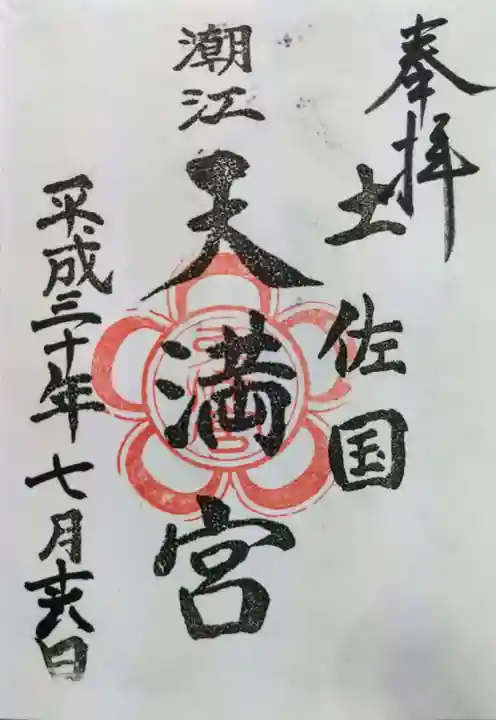 奉拝
土佐国
潮江
天満宮
平成三十年七月十六日